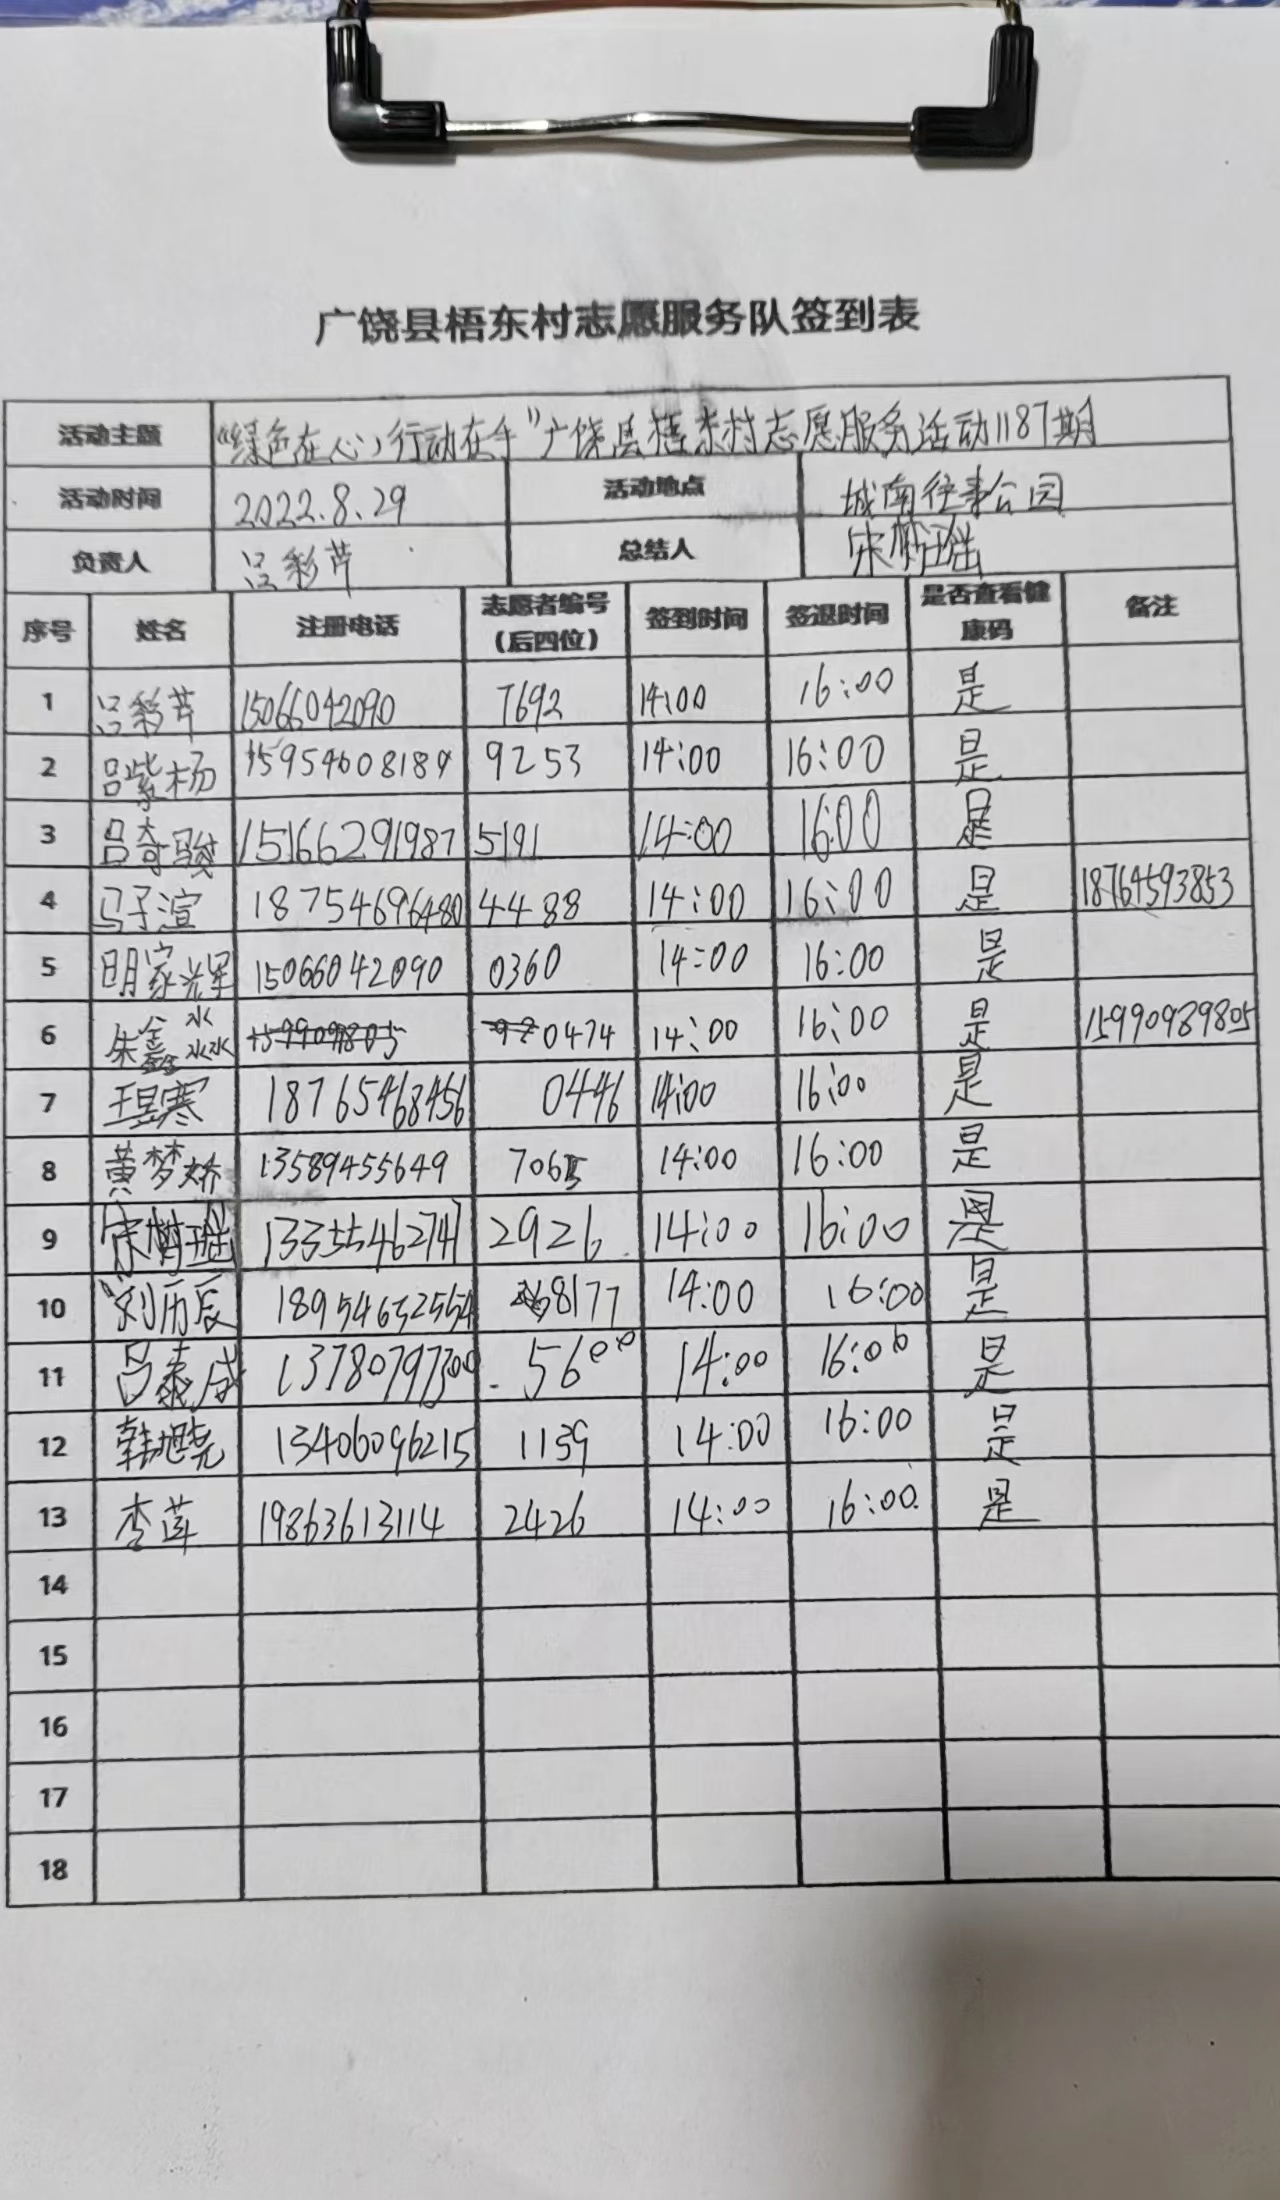 广饶县梧东村志愿服务队签到表
活动主题 “绿色在心，行动在手”广饶县梧东村志愿服务活动1187期
活动时间 2022.8.29 活动地点 城南往事公园
负责人 吕彩芹 总结人 宋梅瑶
序号 姓名 注册电话 志愿者编号（后四位） 签到时间 签退时间 是否查看健康码 备注
1 吕彩芹 15066042090 7692 14:00 16:00 是
2 吕紫杨 15954608189 9253 14:00 16:00 是
3 吕奇骏 15166291987 5191 14:00 16:00 是
4 马子渲 18754696480 4488 14:00 16:00 是 18764593853
5 明家辉 15066042090 0360 14:00 16:00 是
6 朱鑫淼 0474 14:00 16:00 是 15990989805
7 王昱寒 18765468456 0446 14:00 16:00 是
8 黄梦娇 13589455649 7065 14:00 16:00 是
9 宋梅瑶 13355462741 2926 14:00 16:00 是
10 刘历辰 18954632554 8177 14:00 16:00 是
11 吕泰成 13780797300 5600 14:00 16:00 是
12 韩旭尧 13406096215 1139 14:00 16:00 是
13 李莲 19863613114 2426 14:00 16:00 是
14
15
16
17
18